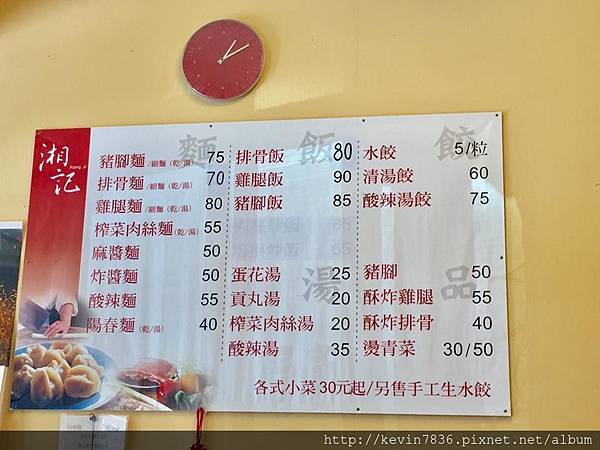 湘記
Xiang Ji
麵
豬腳麵/細麵(乾/湯) 75
排骨麵/細麵(乾/湯) 70
雞腿麵/細麵(乾/湯) 80
榨菜肉絲麵(乾/湯) 55
麻醬麵 50
炸醬麵 50
酸辣麵 55
陽春麵(乾/湯) 40
飯
排骨飯 80
雞腿飯 90
豬腳飯 85
65
65
湯
蛋花湯 25
貢丸湯 20
榨菜肉絲湯 20
酸辣湯 35
餃
水餃 5/粒
清湯餃 60
酸辣湯餃 75
品
豬腳 50
酥炸雞腿 55
酥炸排骨 40
燙青菜 30/50
各式小菜30元起/另售手工生水餃
http://kevin7836.pixnet.net/album